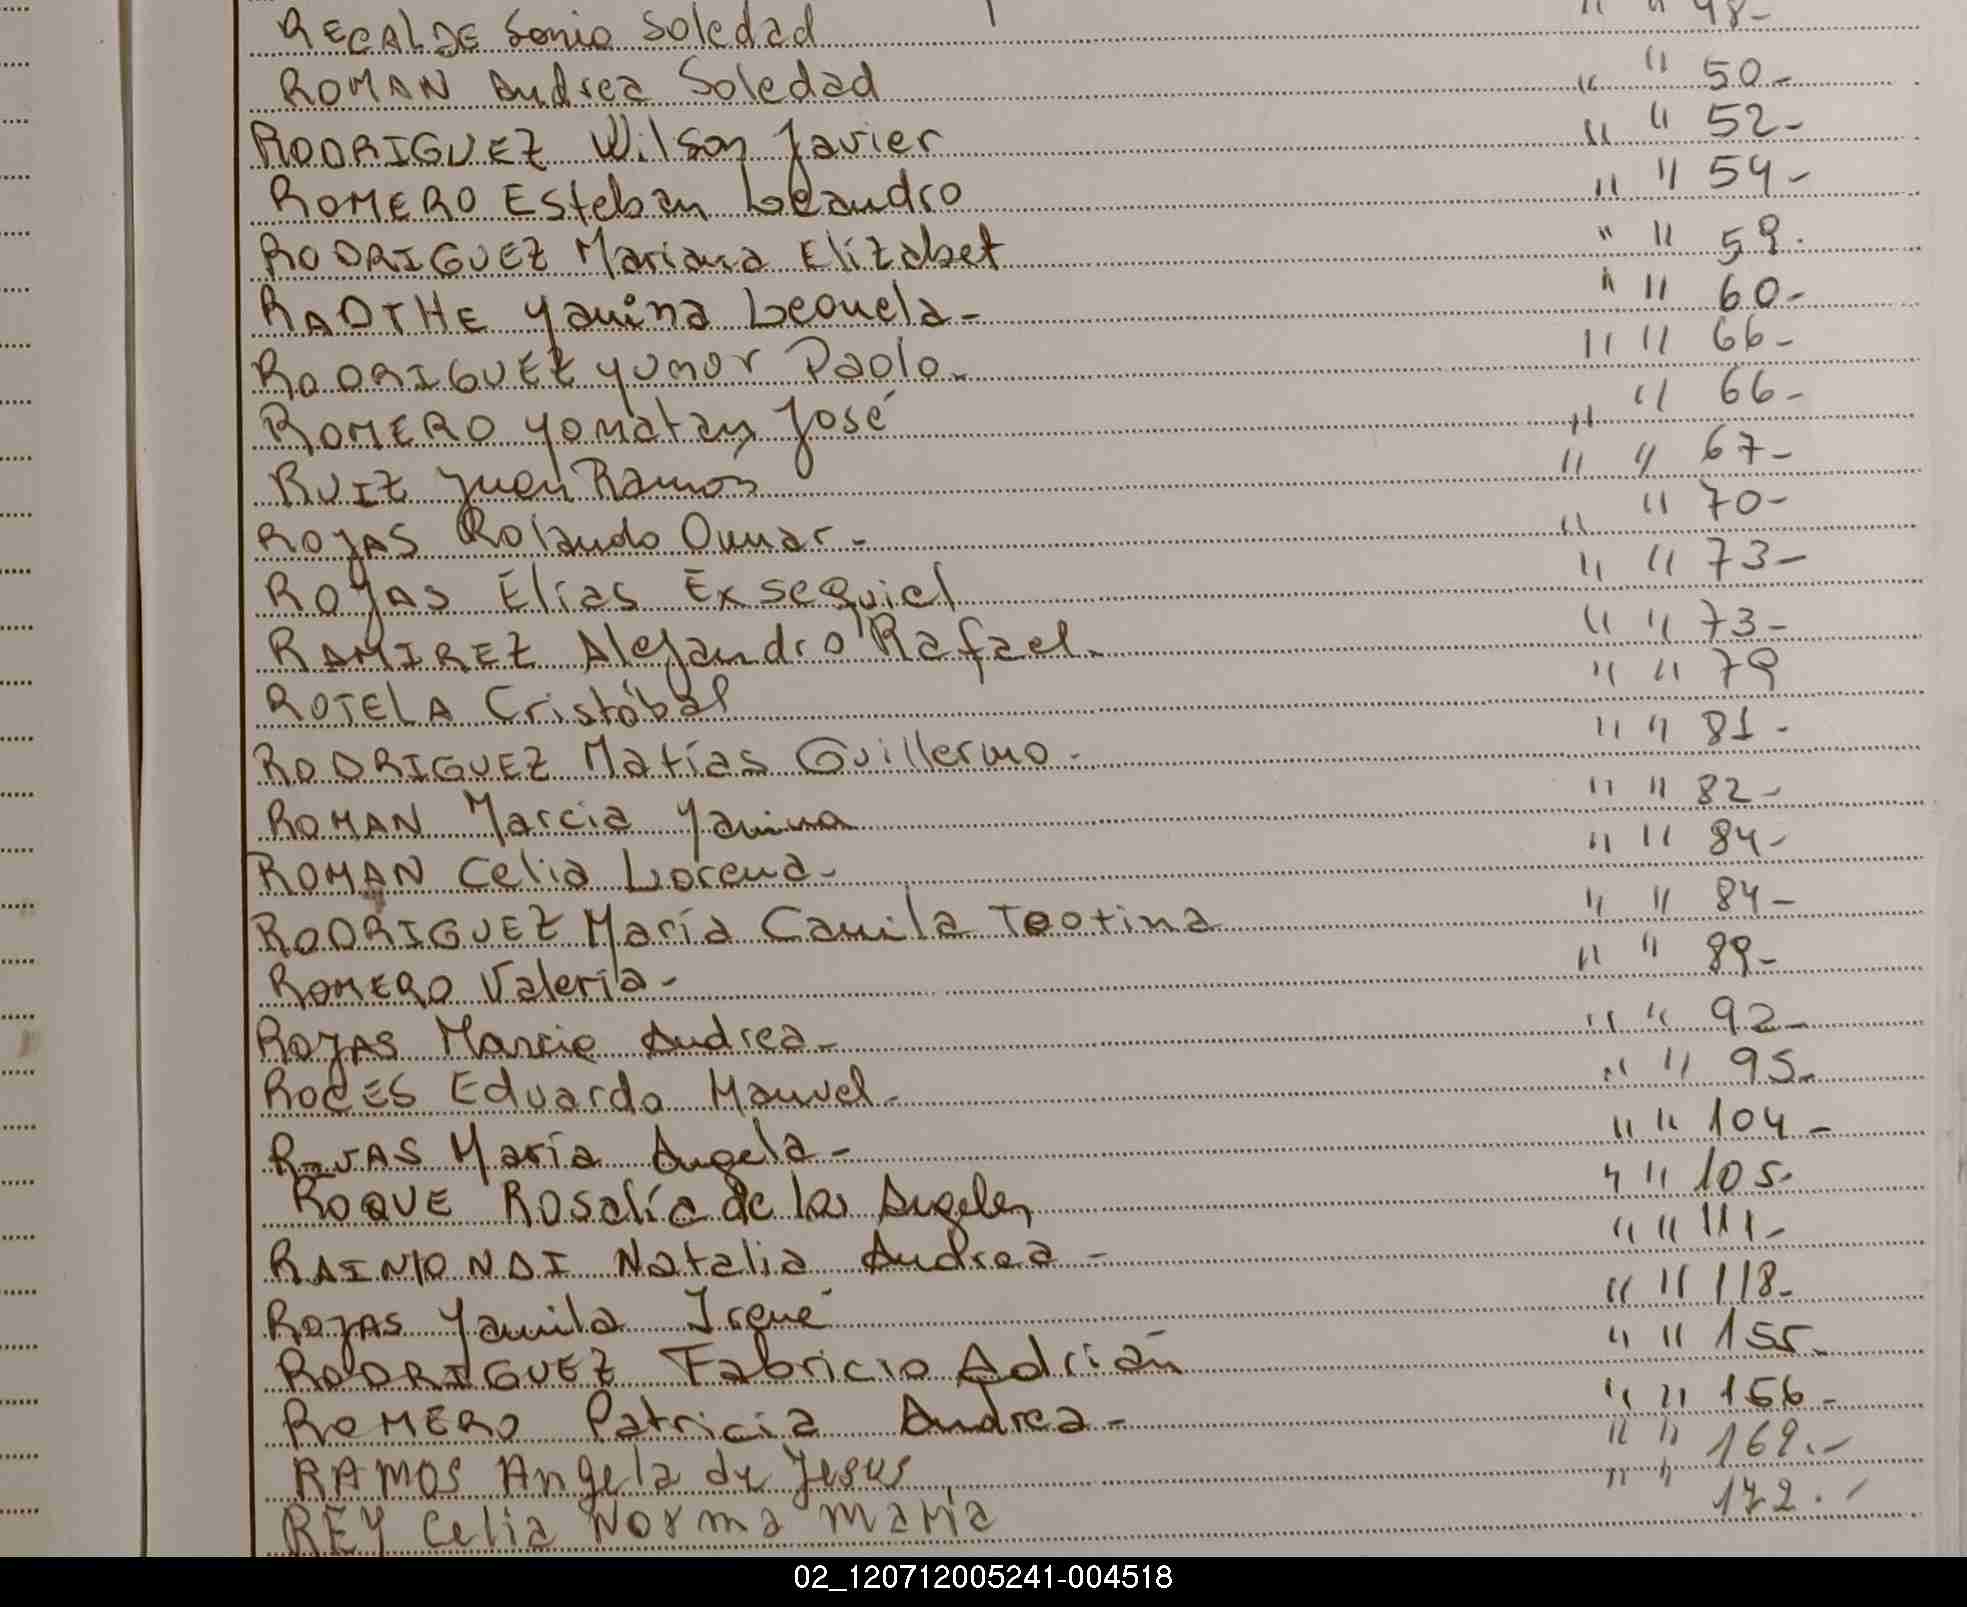 RECALDE Sonia Soledad " " 48-
ROMAN Andrea Soledad " " 50-
RODRIGUEZ Wilson Javier " " 52-
ROMERO Esteban Leandro " " 54-
RODRIGUEZ Mariana Elizabet " " 59.
RADTHE Yanina Leonela- " " 60-
RODRIGUEZ Yunor Paolo- " " 66-
ROMERO Yonatan José " " 66-
RUIZ Juan Ramón " " 67-
ROJAS Rolando Omar- " " 70-
ROJAS Elías Exsequiel " " 73-
RAMIREZ Alejandro Rafael- " " 73-
ROTELA Cristóbal " " 79
RODRIGUEZ Matías Guillermo- " " 81-
ROMAN Marcia Yanina " " 82-
ROMAN Celia Lorena- " " 84-
RODRIGUEZ María Camila Teotina " " 84-
ROMERO Valeria- " " 89-
ROJAS Marcie Andrea- " " 92-
ROCES Eduardo Manuel- " " 95-
María Angela- " " 104-
ROQUE Rosalía de los Angeles " " 105-
RAIMONDI Natalia Andrea- " " 111-
ROJAS Yamila Irené " " 118-
RODRIGUEZ Fabricio Adrián " " 155-
ROMERO Patricia Andrea- " " 156-
RAMOS Angela de Jesus " " 169.-
REY Celia Norma María " " 172.-
02_120712005241-004518